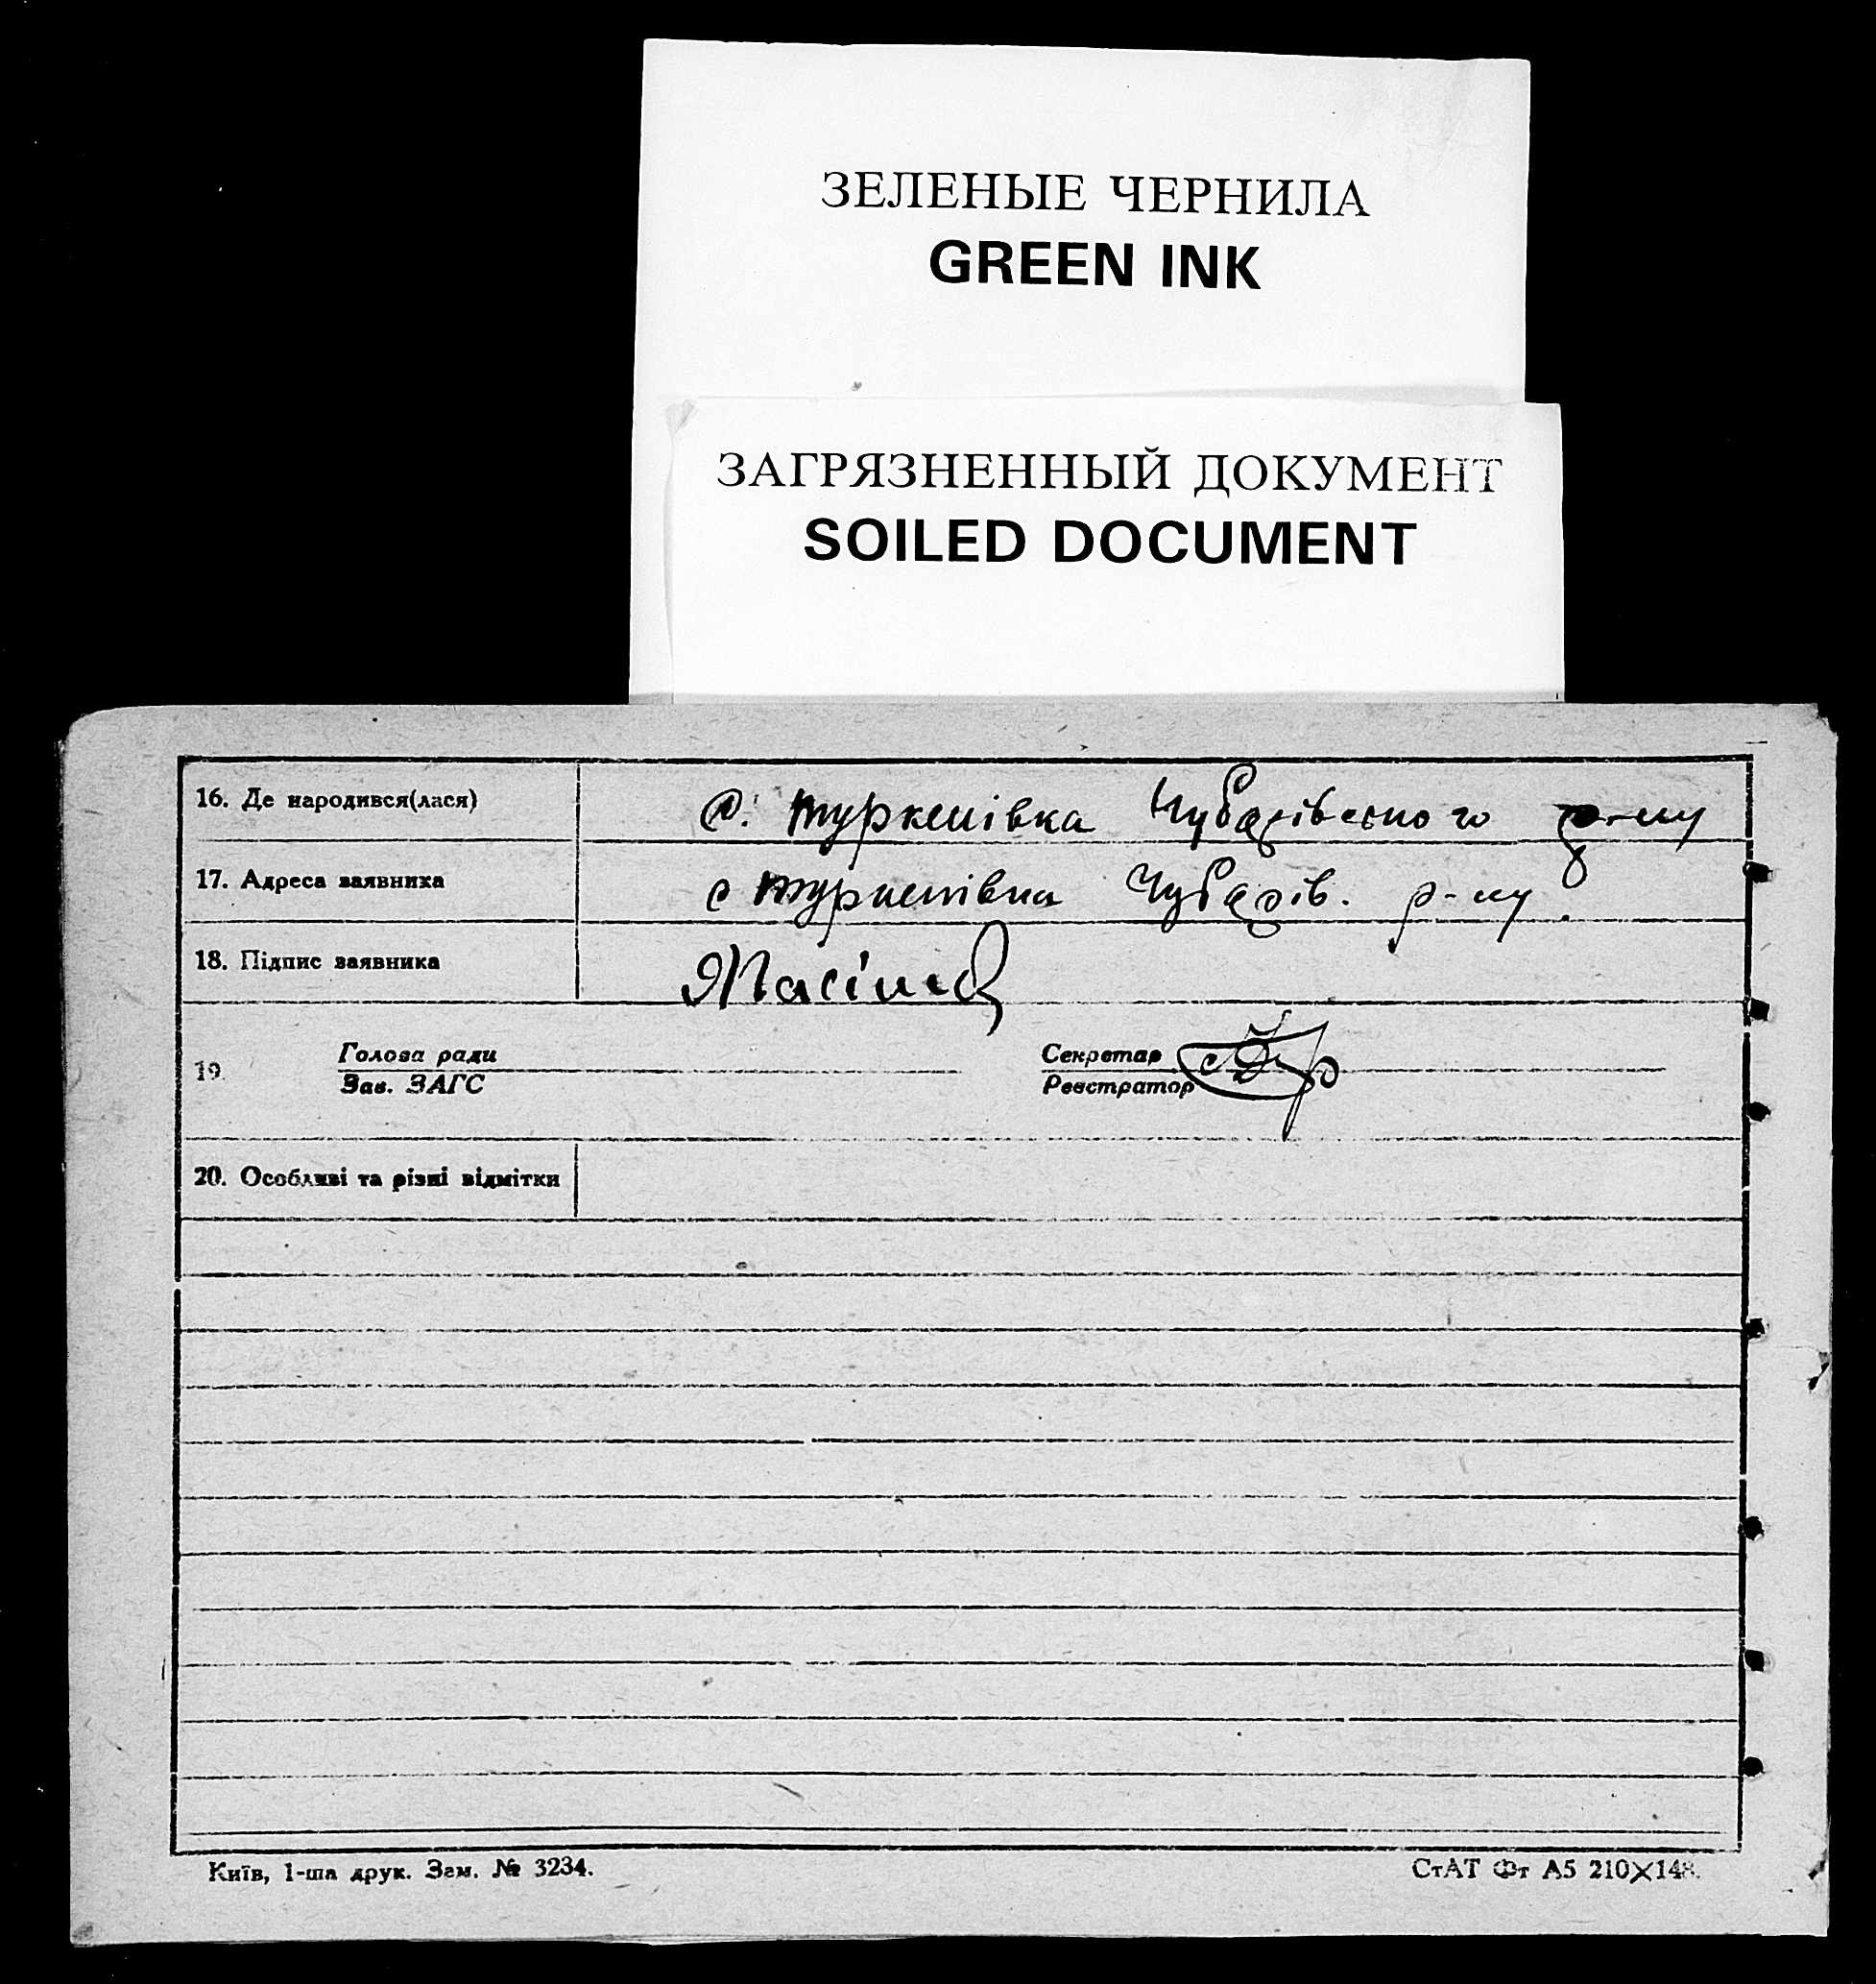 ЗЕЛЕНЫЕ ЧЕРНИЛА
GREEN INK
ЗАГРЯЗНЕННЫЙ ДОКУМЕНТ
SOILED DOCUMENT
16. Де народився(лася) с. Туркенівка Чубарівського р-ну
17. Адреса заявника с Туркенівка Чубарів. р-ну
18. Підпис заявника
19. Голова ради Секретар
Зав. ЗАГС Реєстратор
20. Особливі та різні відмітки
Київ, 1-ша друк. Зам. № 3234. СтАТ Фт А5 210×148.